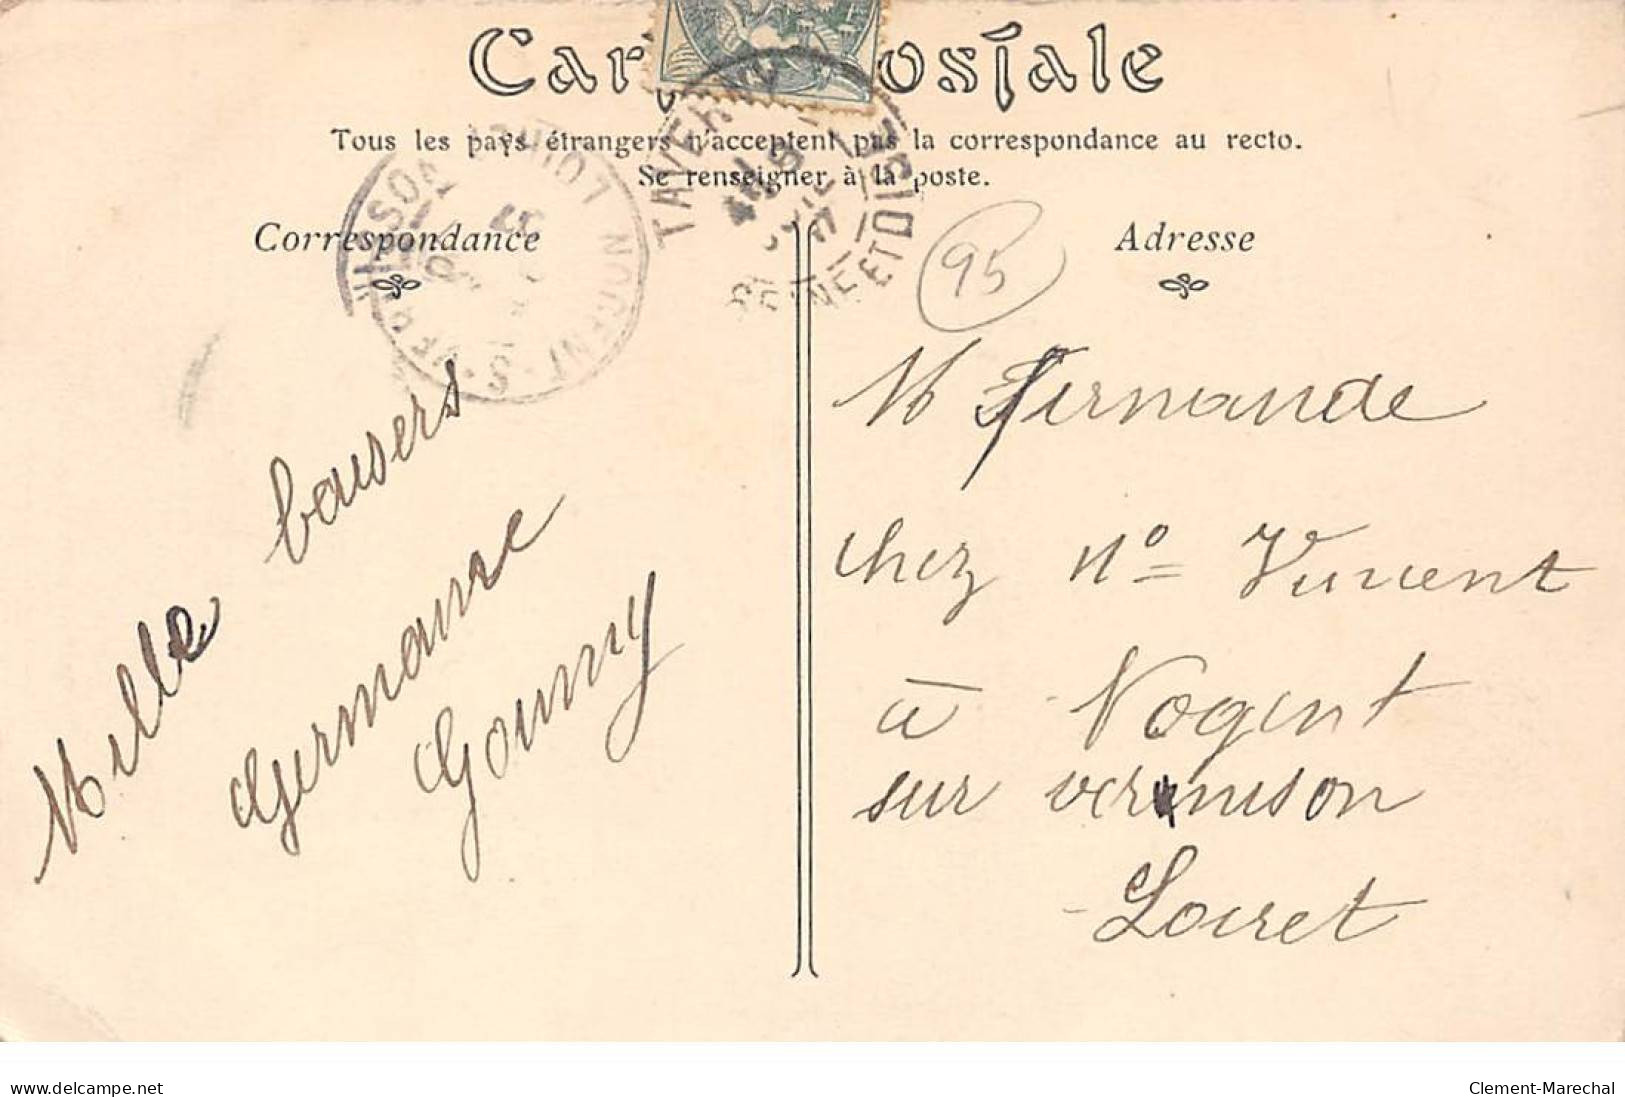 Carte Postale
Tous les pays étrangers n'acceptent pas la correspondance au recto.
Se renseigner à la poste.
Correspondance
Adresse
TAVERNY
SEINE ET OISE
NOGENT-S-VERNISSON
LOIRET
95
Mille baisers
Germaine
Gouny
M Fernande
chez Mo Vincent
à Nogent
sur vernison
Loiret
www.delcampe.net
Clement-Marechal